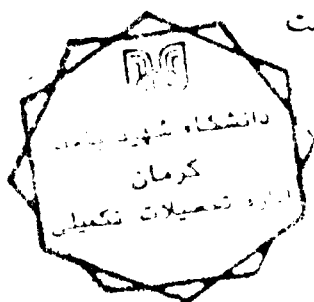 دانشگاه شهید باهنر
کرمان
اداره تحصیلات تکمیلی